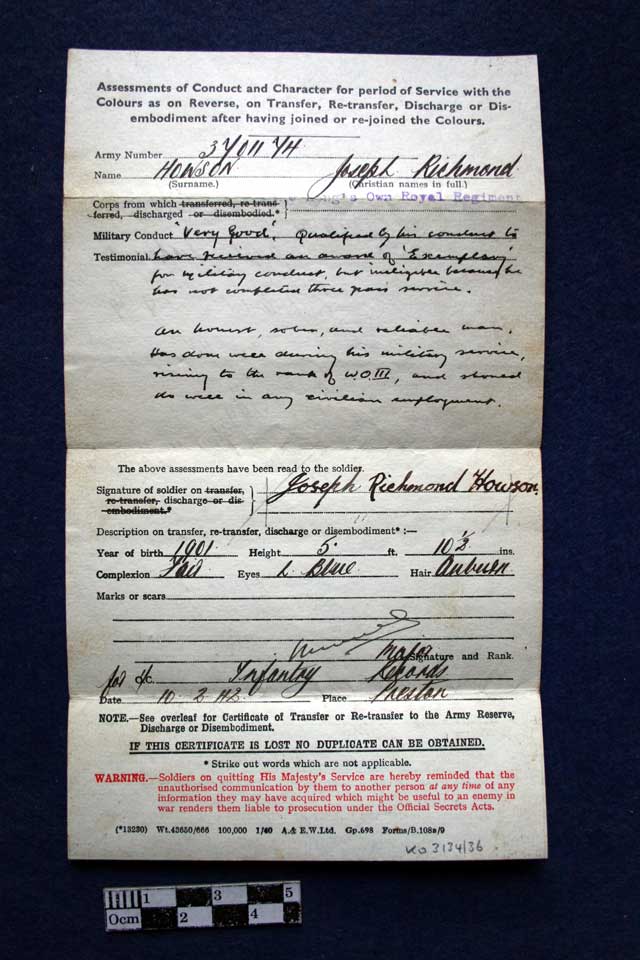 Assessments of Conduct and Character for period of Service with the
Colours as on Reverse, on Transfer, Re-transfer, Discharge or Dis-
embodiment after having joined or re-joined the Colours.
Army Number 3701174
Name HOWSON Joseph Richmond
(Surname.) (Christian names in full.)
King's Own Royal Regiment
Corps from which transferred, re-trans-
ferred, discharged or disembodied.*
Military Conduct "Very Good". Qualified by his conduct to
Testimonial. have received an award of 'Exemplary'
for military conduct, but ineligible because he
has not completed three years service.
An honest, sober, and reliable man.
Has done well during his military service,
rising to the rank of W.O.III, and should
do well in any civilian employment.
The above assessments have been read to the soldier.
Signature of soldier on transfer,
re-transfer, discharge or dis-
embodiment.* Joseph Richmond Howson.
Description on transfer, re-transfer, discharge or disembodiment* :—
Year of birth 1901 Height 5 ft. 10½ ins.
Complexion Fair Eyes L. Blue Hair Auburn
Marks or scars
Major Signature and Rank.
for i/c. Infantry Records
Date 10.2.42. Place Preston
NOTE.—See overleaf for Certificate of Transfer or Re-transfer to the Army Reserve,
Discharge or Disembodiment.
IF THIS CERTIFICATE IS LOST NO DUPLICATE CAN BE OBTAINED.
* Strike out words which are not applicable.
WARNING.—Soldiers on quitting His Majesty's Service are hereby reminded that the
unauthorised communication by them to another person at any time of any
information they may have acquired which might be useful to an enemy in
war renders them liable to prosecution under the Official Secrets Acts.
(*13230) Wt.43650/666 100,000 1/40 A.& E.W.Ltd. Gp.698 Forms/B.108a/9
KO 3134/36
1 3 5
0cm 2 4